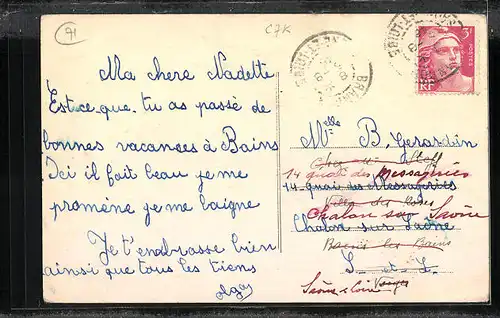 91
C7K
3F
POSTES
RF
Ma chere Nadette
Est ce que tu as passé de
bonnes vacances à Bains
Ici il fait beau je me
promène je me baigne
Je t'embrasse bien
ainsi que tous les tiens
Olga
Melle B. Gerardin
Chez
14 quai des Messageries
14 quai des Messageries
Villa des Roses
Chalon sur Saône
Chalon sur Saône
Bains les Bains
S. et L.
Saône & Loire Vosges